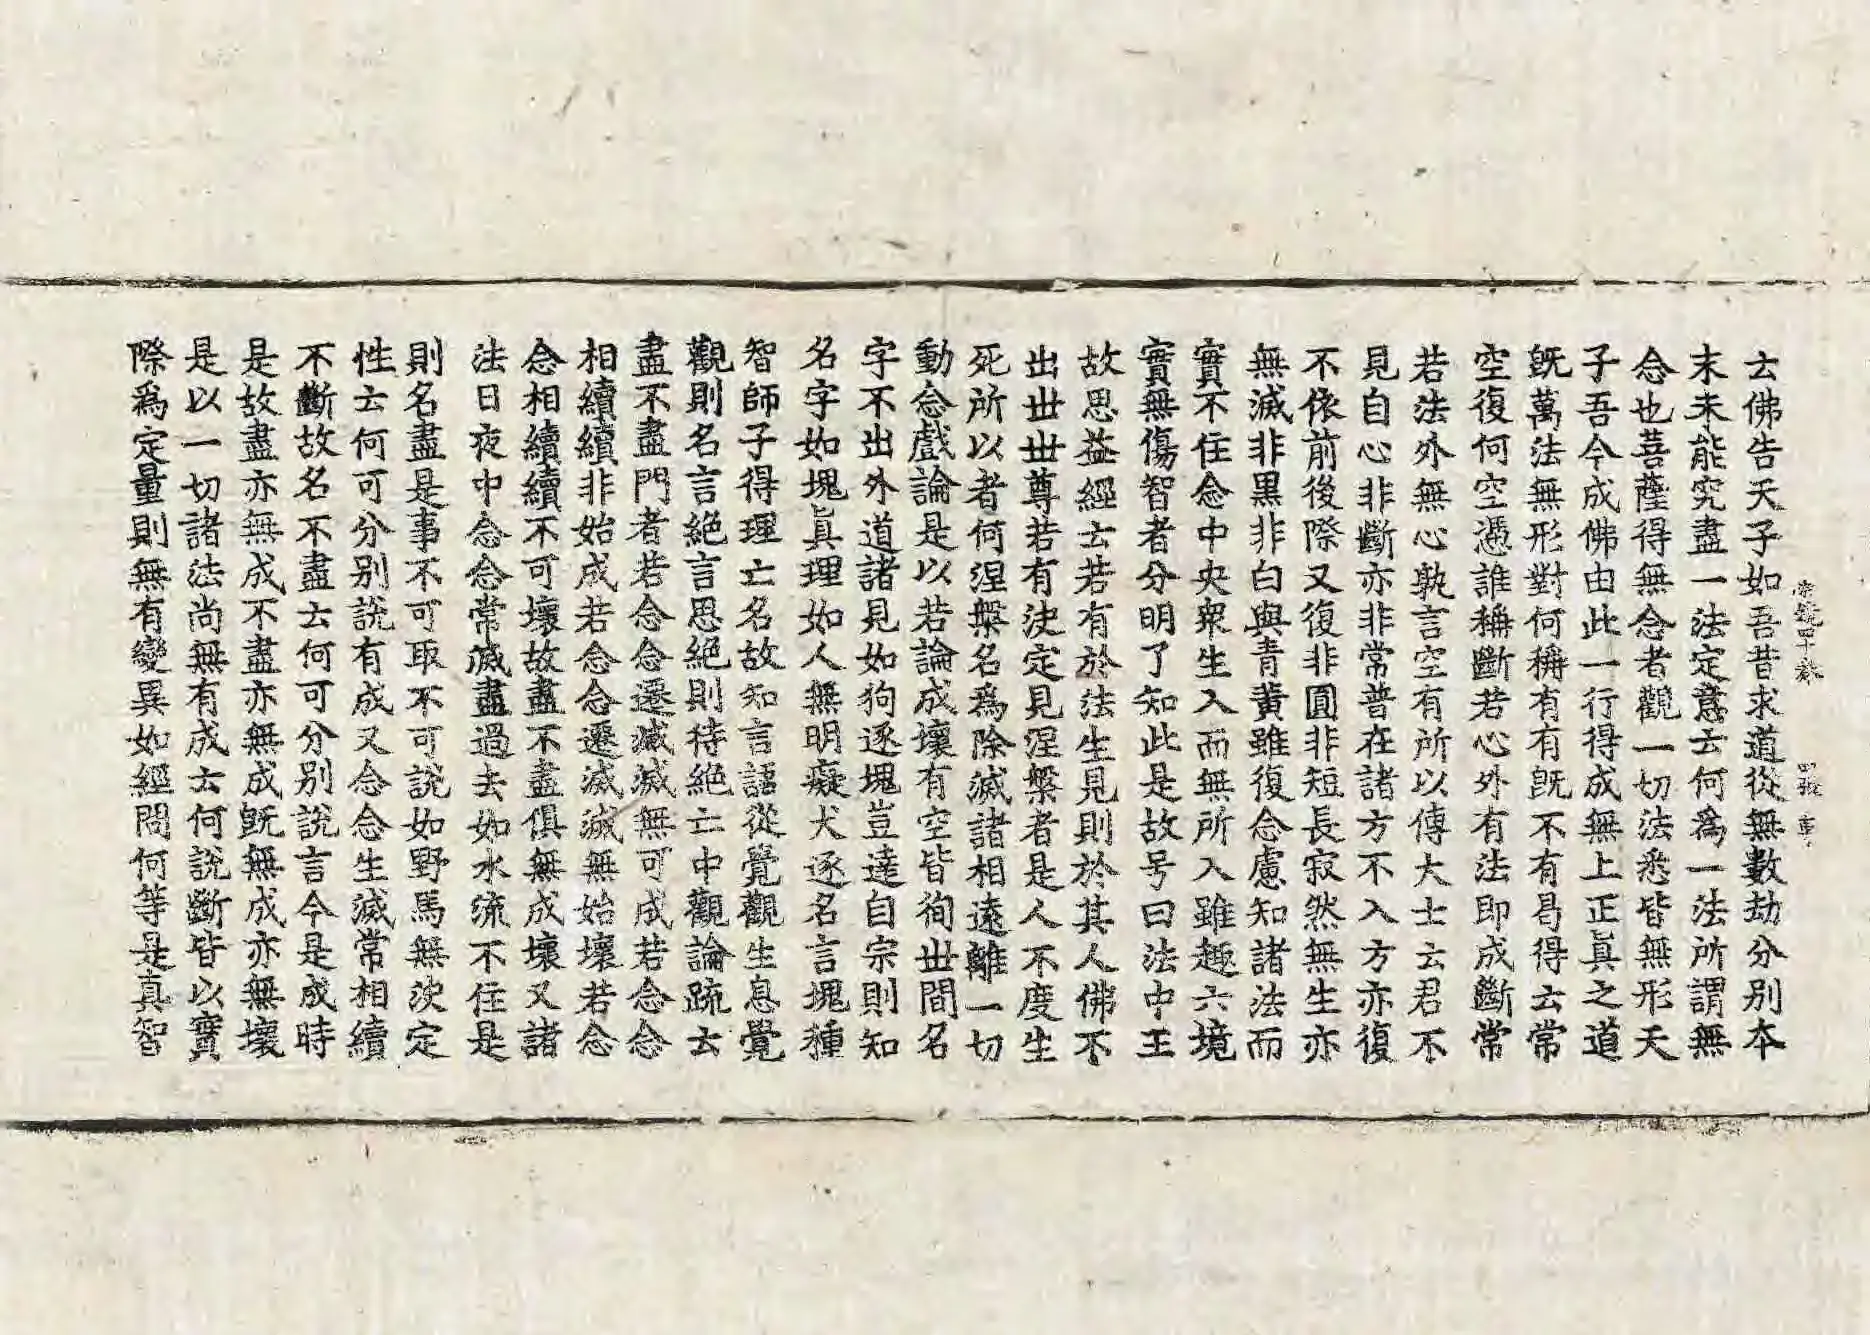 去佛告天子如吾昔求道從無數劫分別本
末未能究盡一法定意云何為一法所謂無
念也菩薩得無念者觀一切法悉皆無形天
子吾今成佛由此一行得成無上正真之道
旣萬法無形對何稱有有旣不有曷得云常
空復何空憑誰稱斷若心外有法即成斷常
若法外無心孰言空有所以傳大士云君不
見自心非斷亦非常普在諸方不入方亦復
不依前後際又復非圓非短長寂然無生亦
無滅非黒非白與青黃雖復念慮知諸法而
實不住念中央衆生入而無所入雖趣六境
實無傷智者分明了知此是故号曰法中王
故思益經云若有於法生見則於其人佛不
出世世尊若有決定見涅槃者是人不度生
死所以者何涅槃名爲除滅諸相遠離一切
動念戲論是以若論成壞有空皆徇世間名
字不出外道諸見如狗逐塊豈達自宗則知
名字如塊眞理如人無明癡犬逐名言塊種
智師子得理亡名故知言語從覺觀生息覺
觀則名言絶言思絶則待絶亡中觀論䟽云
盡不盡門者若念念遷滅滅無可成若念念
相續續非始成若念念遷滅滅無始壞若念
念相續續不可壞故盡不盡俱無成壞又諸
法日夜中念念常滅盡過去如水流不住是
則名盡是事不可取不可說如野馬無決定
性云何可分別說有成又念念生滅常相續
不斷故名不盡云何可分別說言今是成時
是故盡亦無成不盡亦無成旣無成亦無壞
是以一切諸法尚無有成云何說斷皆以實
際爲定量則無有變異如經問何等是真智